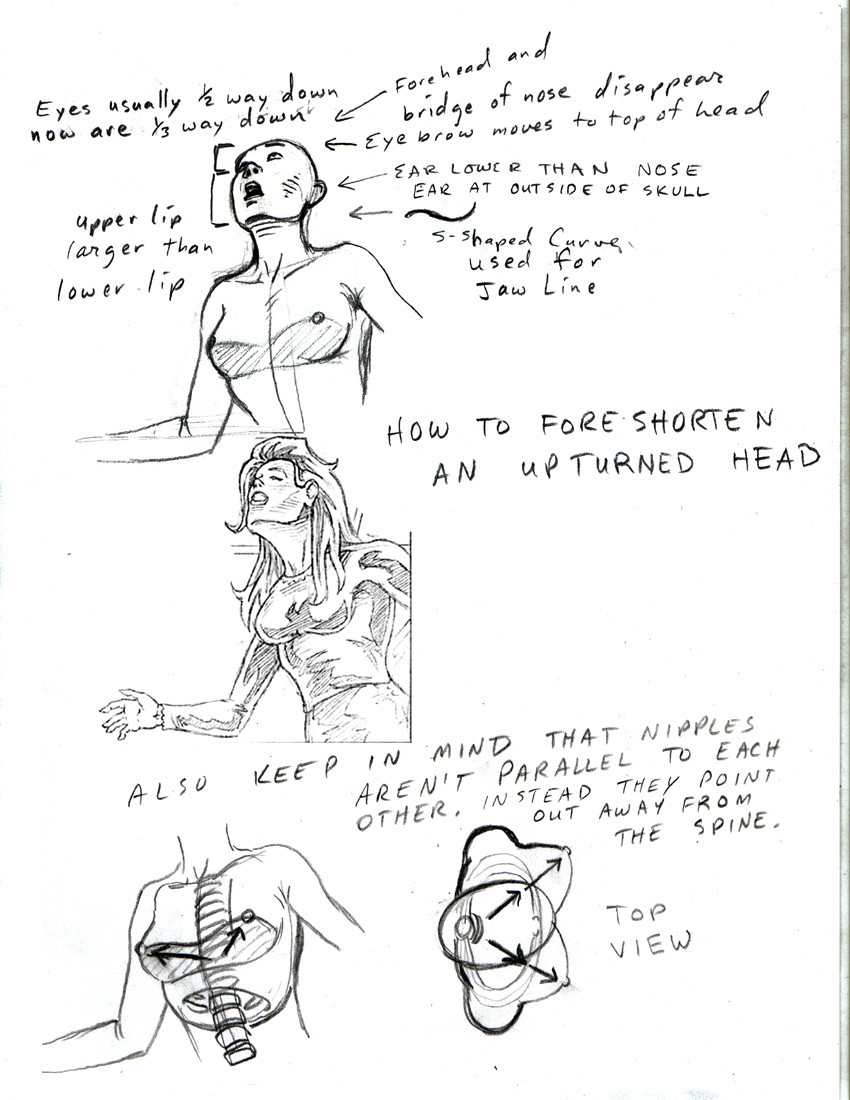 Eyes usually ½ way down
now are ⅓ way down
Forehead and
bridge of nose disappear
Eyebrow moves to top of head
EAR LOWER THAN NOSE
EAR AT OUTSIDE OF SKULL
upper lip
larger than
lower lip
S-shaped Curve
used for
Jaw Line
HOW TO FORESHORTEN
AN UPTURNED HEAD
ALSO KEEP IN MIND THAT NIPPLES
AREN'T PARALLEL TO EACH
OTHER. INSTEAD THEY POINT
OUT AWAY FROM
THE SPINE.
TOP
VIEW